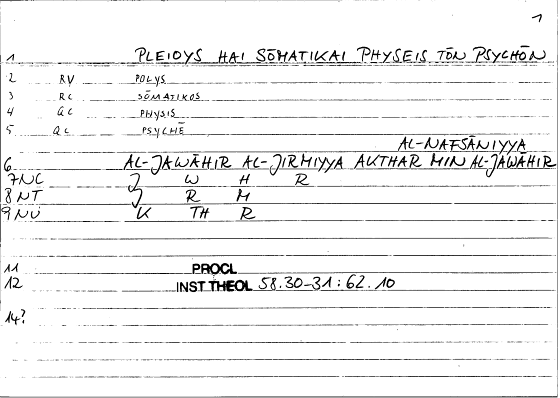 1
1 PLEIOYS HAI SŌMATIKAI PHYSEIS TŌN PSYCHŌN
2 RV POLYS
3 RC SŌMATIKOS
4 QC PHYSIS
5 QC PSYCHĒ
AL-NAFSĀNIYYA
6 AL-JAWĀHIR AL-JIRMIYYA AKTHAR MIN AL-JAWĀHIR
7NC J W H R
8NT J R M
9NU K TH R
11 PROCL
12 INST THEOL 58.30-31 : 62.10
14?